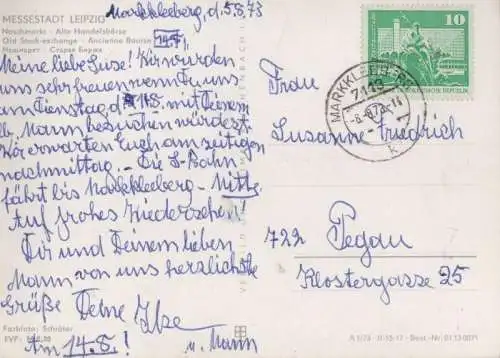 MESSESTADT LEIPZIG
Naschmarkt · Alte Handelsbörse
Old Stock-exchange · Ancienne Bourse
Нашмаркт · Старая Биржа
Markkleeberg, d. 5.8.73
14.8.
Meine liebe Suse! Wir würden
uns sehr freuen, wenn Du uns
am Dienstag d. 14.8. mit Deinem
lb. Mann besuchen würdest.
Wir erwarten Euch am zeitigen
nachmittag. – Die S-Bahn
fährt bis Markkleeberg-Mitte.
Auf frohes Wiedersehen!
Dir und Deinem lieben
Mann von uns herzlichste
Grüße Deine Ilse
u. Mann
Am 14.8.!
Farbfoto: Schröter
EVP:
10
MARKKLEEBERG
7113
-6.-8.73-14
Frau
Susanne Friedrich
722 Pegau
Klostergasse 25
A 1/73 Best.-Nr.